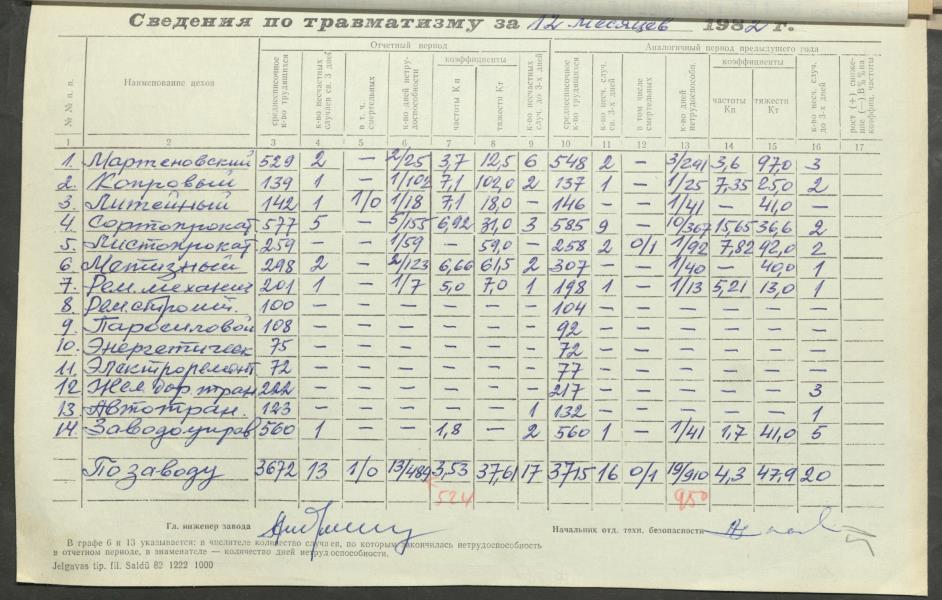 Сведения по травматизму за 12 месяцев 1982 г.
№ № п. п. | Наименование цехов | Отчетный период | Аналогичный период предыдущего года | рост (+) сниже-ние (—) в % % на коэффиц. частоты
среднесписочное к-во трудящихся | к-во несчастных случаев св. 3 дней | в т. ч. смертельных | к-во дней нетру-доспособности | коэффициенты частоты Кп | тяжести Кт | к-во несчастных случ. до 3-х дней | среднесписочное к-во трудящихся | к-во несч. случ. св. 3-х дней | в том числе смертельных | к-во дней нетрудоспособн. | коэффициенты частоты Кп | тяжести Кт | к-во несч. случ. до 3-х дней
1 | 2 | 3 | 4 | 5 | 6 | 7 | 8 | 9 | 10 | 11 | 12 | 13 | 14 | 15 | 16 | 17
1. Мартеновский 529 2 — 2/25 3,7 12,5 6 548 2 — 3/291 3,6 97,0 3
2. Копровый 139 1 — 1/102 7,1 102,0 2 137 1 — 1/25 7,35 25,0 2
3. Литейный 142 1 1/0 1/18 7,1 18,0 — 146 — — 1/41 — 41,0 —
4. Сортопрокат 577 5 — 5/155 6,92 31,0 3 585 9 — 10/367 15,65 36,6 2
5. Листопрокат 259 — — 1/59 — 59,0 — 258 2 0/1 1/92 7,82 92,0 2
6. Метизный 298 2 — 2/123 6,66 61,5 2 307 — — 1/40 — 40,0 1
7. Рем.механич 201 1 — 1/7 5,0 7,0 1 198 1 — 1/13 5,21 13,0 1
8. Рем.строит. 100 — — — — — — 104 — — — — — —
9. Паросиловой 108 — — — — — — 92 — — — — — —
10. Энергетическ 75 — — — — — — 72 — — — — — —
11. Электроремонт 72 — — — — — — 77 — — — — — —
12 Жел.дор.тран 222 — — — — — — 217 — — — — — 3
13. Автотран. 123 — — — — — 1 132 — — — — — 1
14. Заводоуправ 560 1 — — 1,8 — 2 560 1 — 1/41 1,7 41,0 5
По заводу 3672 13 1/0 13/489 3,53 37,61 17 3715 16 0/1 19/910 4,3 47,9 20
524 950
Гл. инженер завода
Начальник отд. техн. безопасности
В графе 6 и 13 указывается: в числителе количество случаев, по которым закончилась нетрудоспособность
в отчетном периоде, в знаменателе — количество дней нетрудоспособности.
Jelgavas tip. fil. Saldū 82 1222 1000